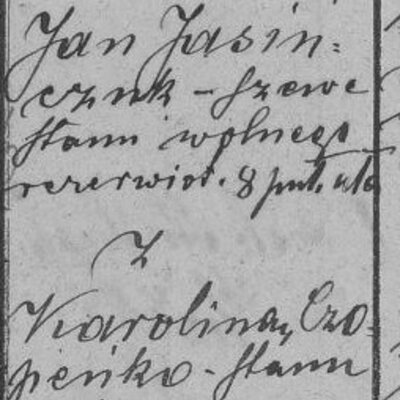 Jan Jasin=
czuk - szewc
stanu wolnego
rezerwist. 8 puł. uła
z
Karoliną Czo-
pieńko - stanu